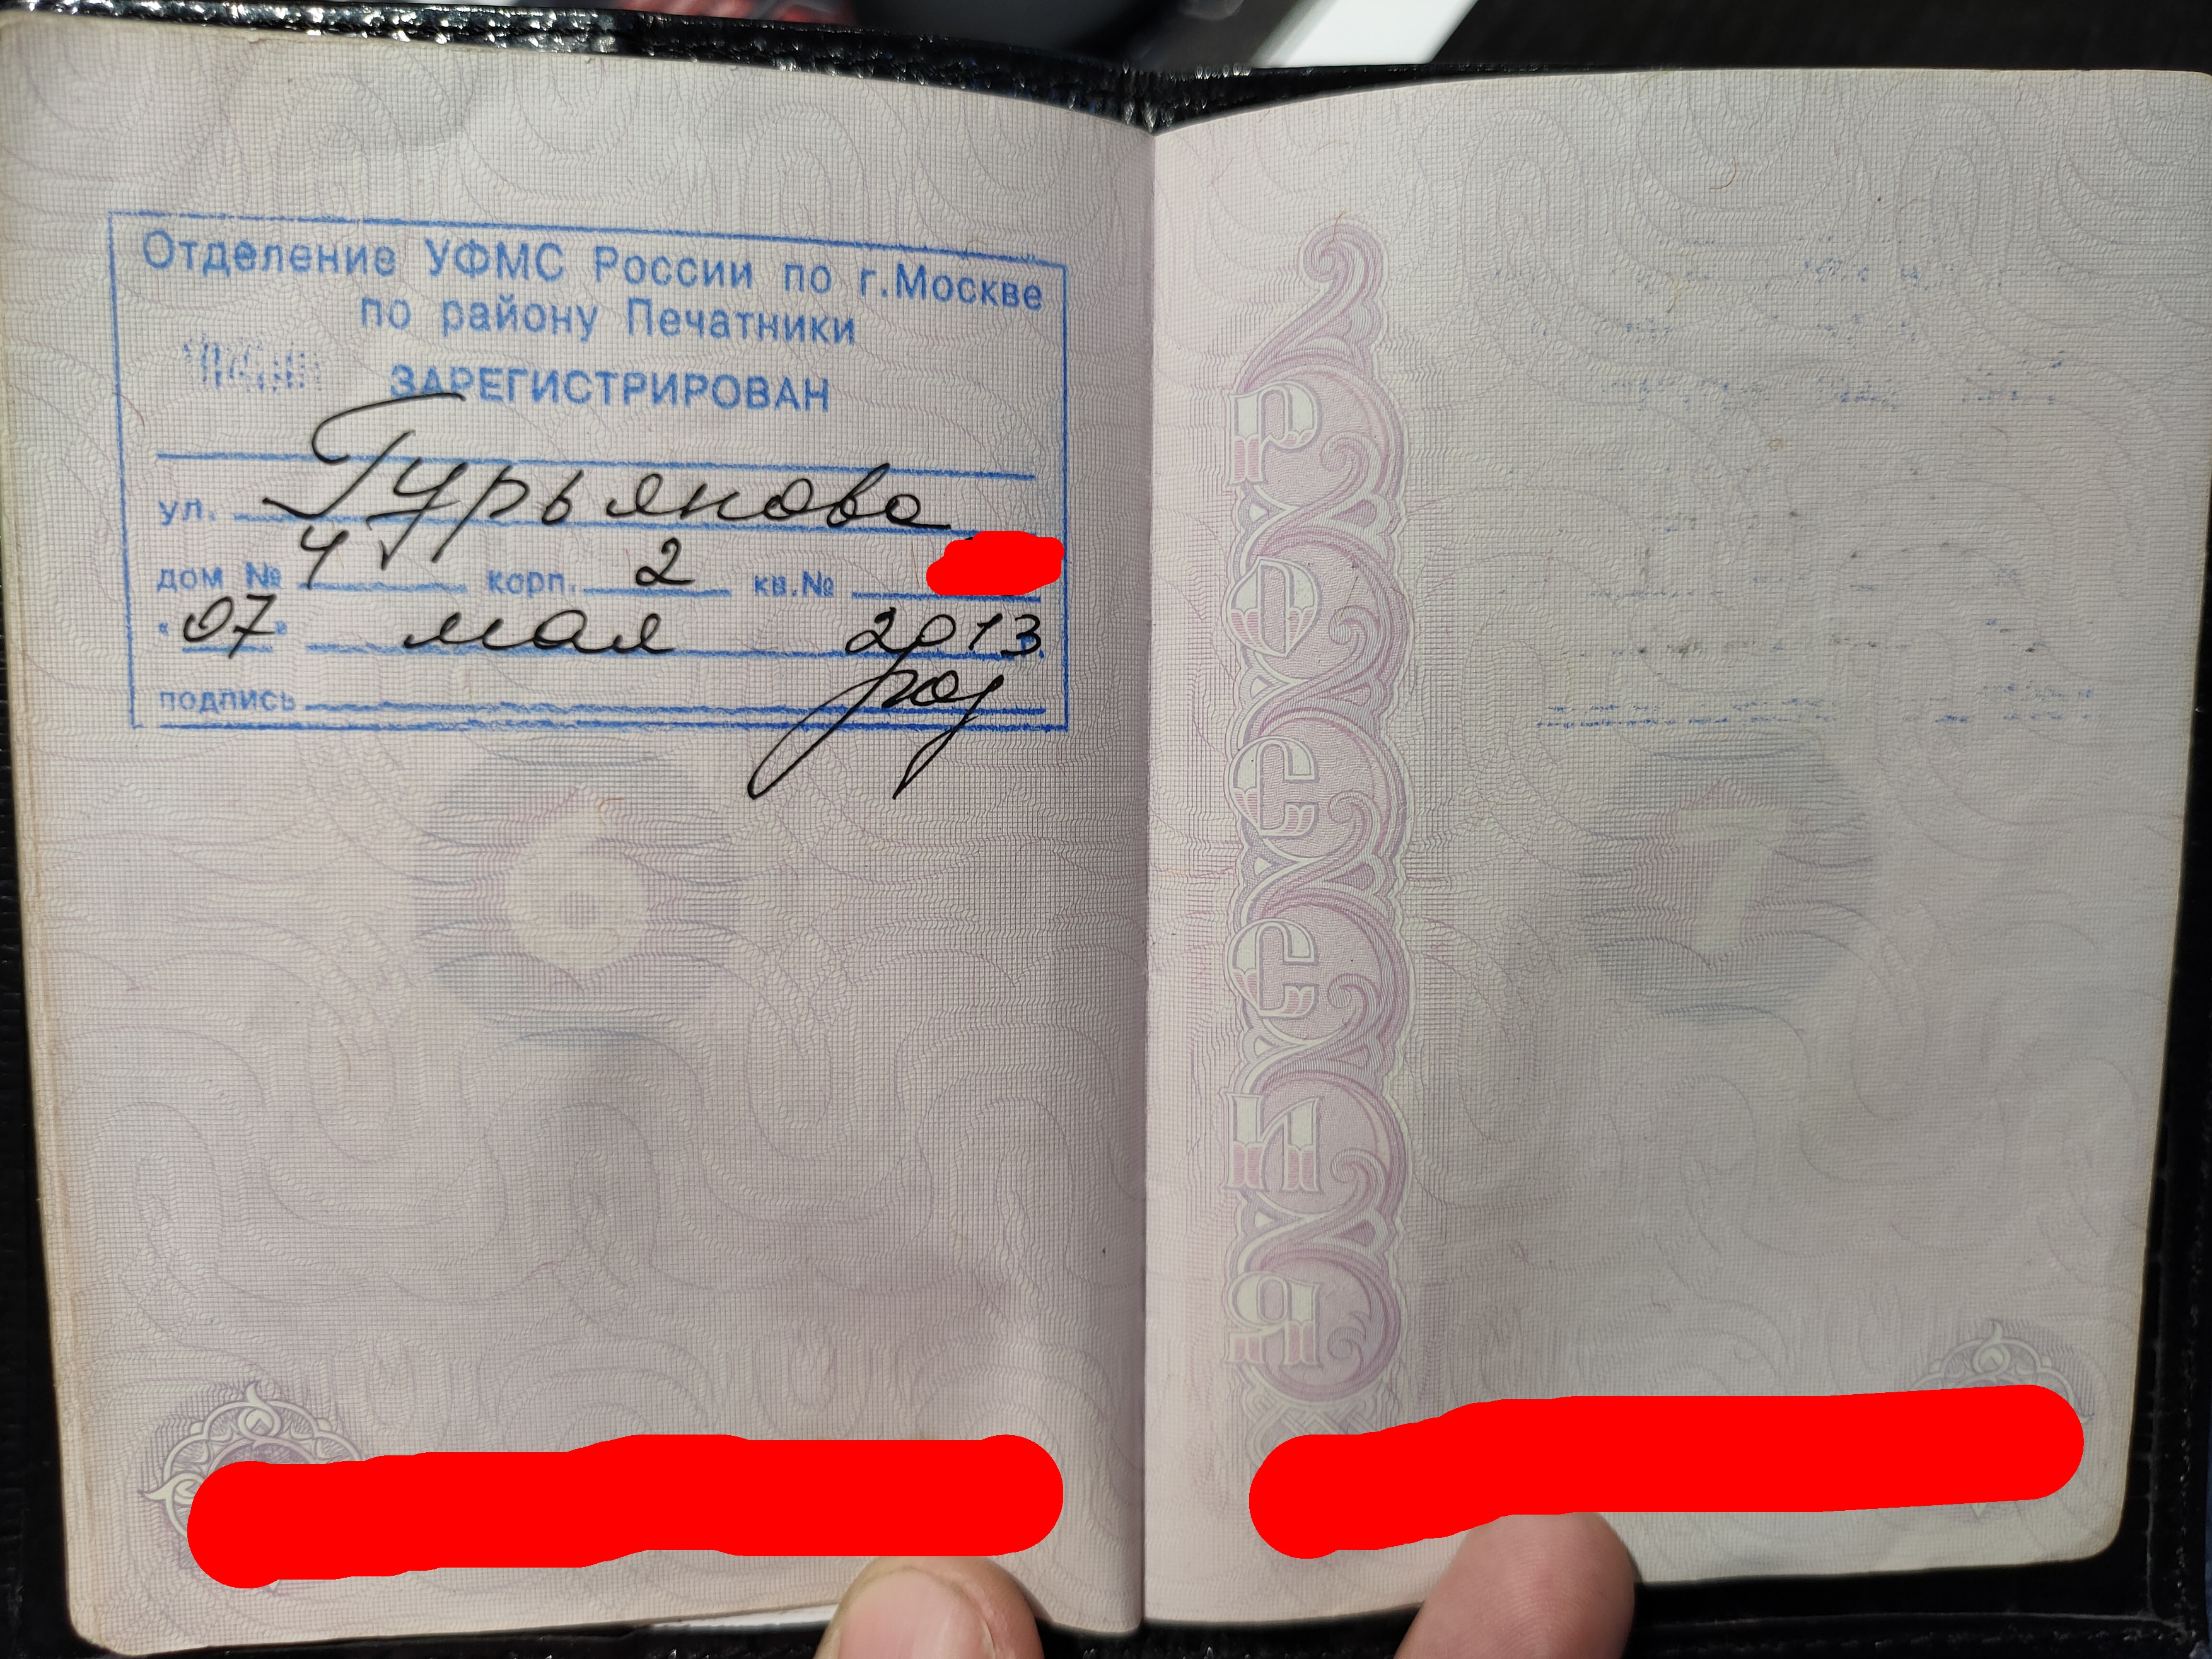 Отделение УФМС России по г.Москве
по району Печатники
ЗАРЕГИСТРИРОВАН
ул. Гурьянова
дом № 4 корп. 2 кв.№
"07" мая 2013
подпись
6
РОССИЯ
7